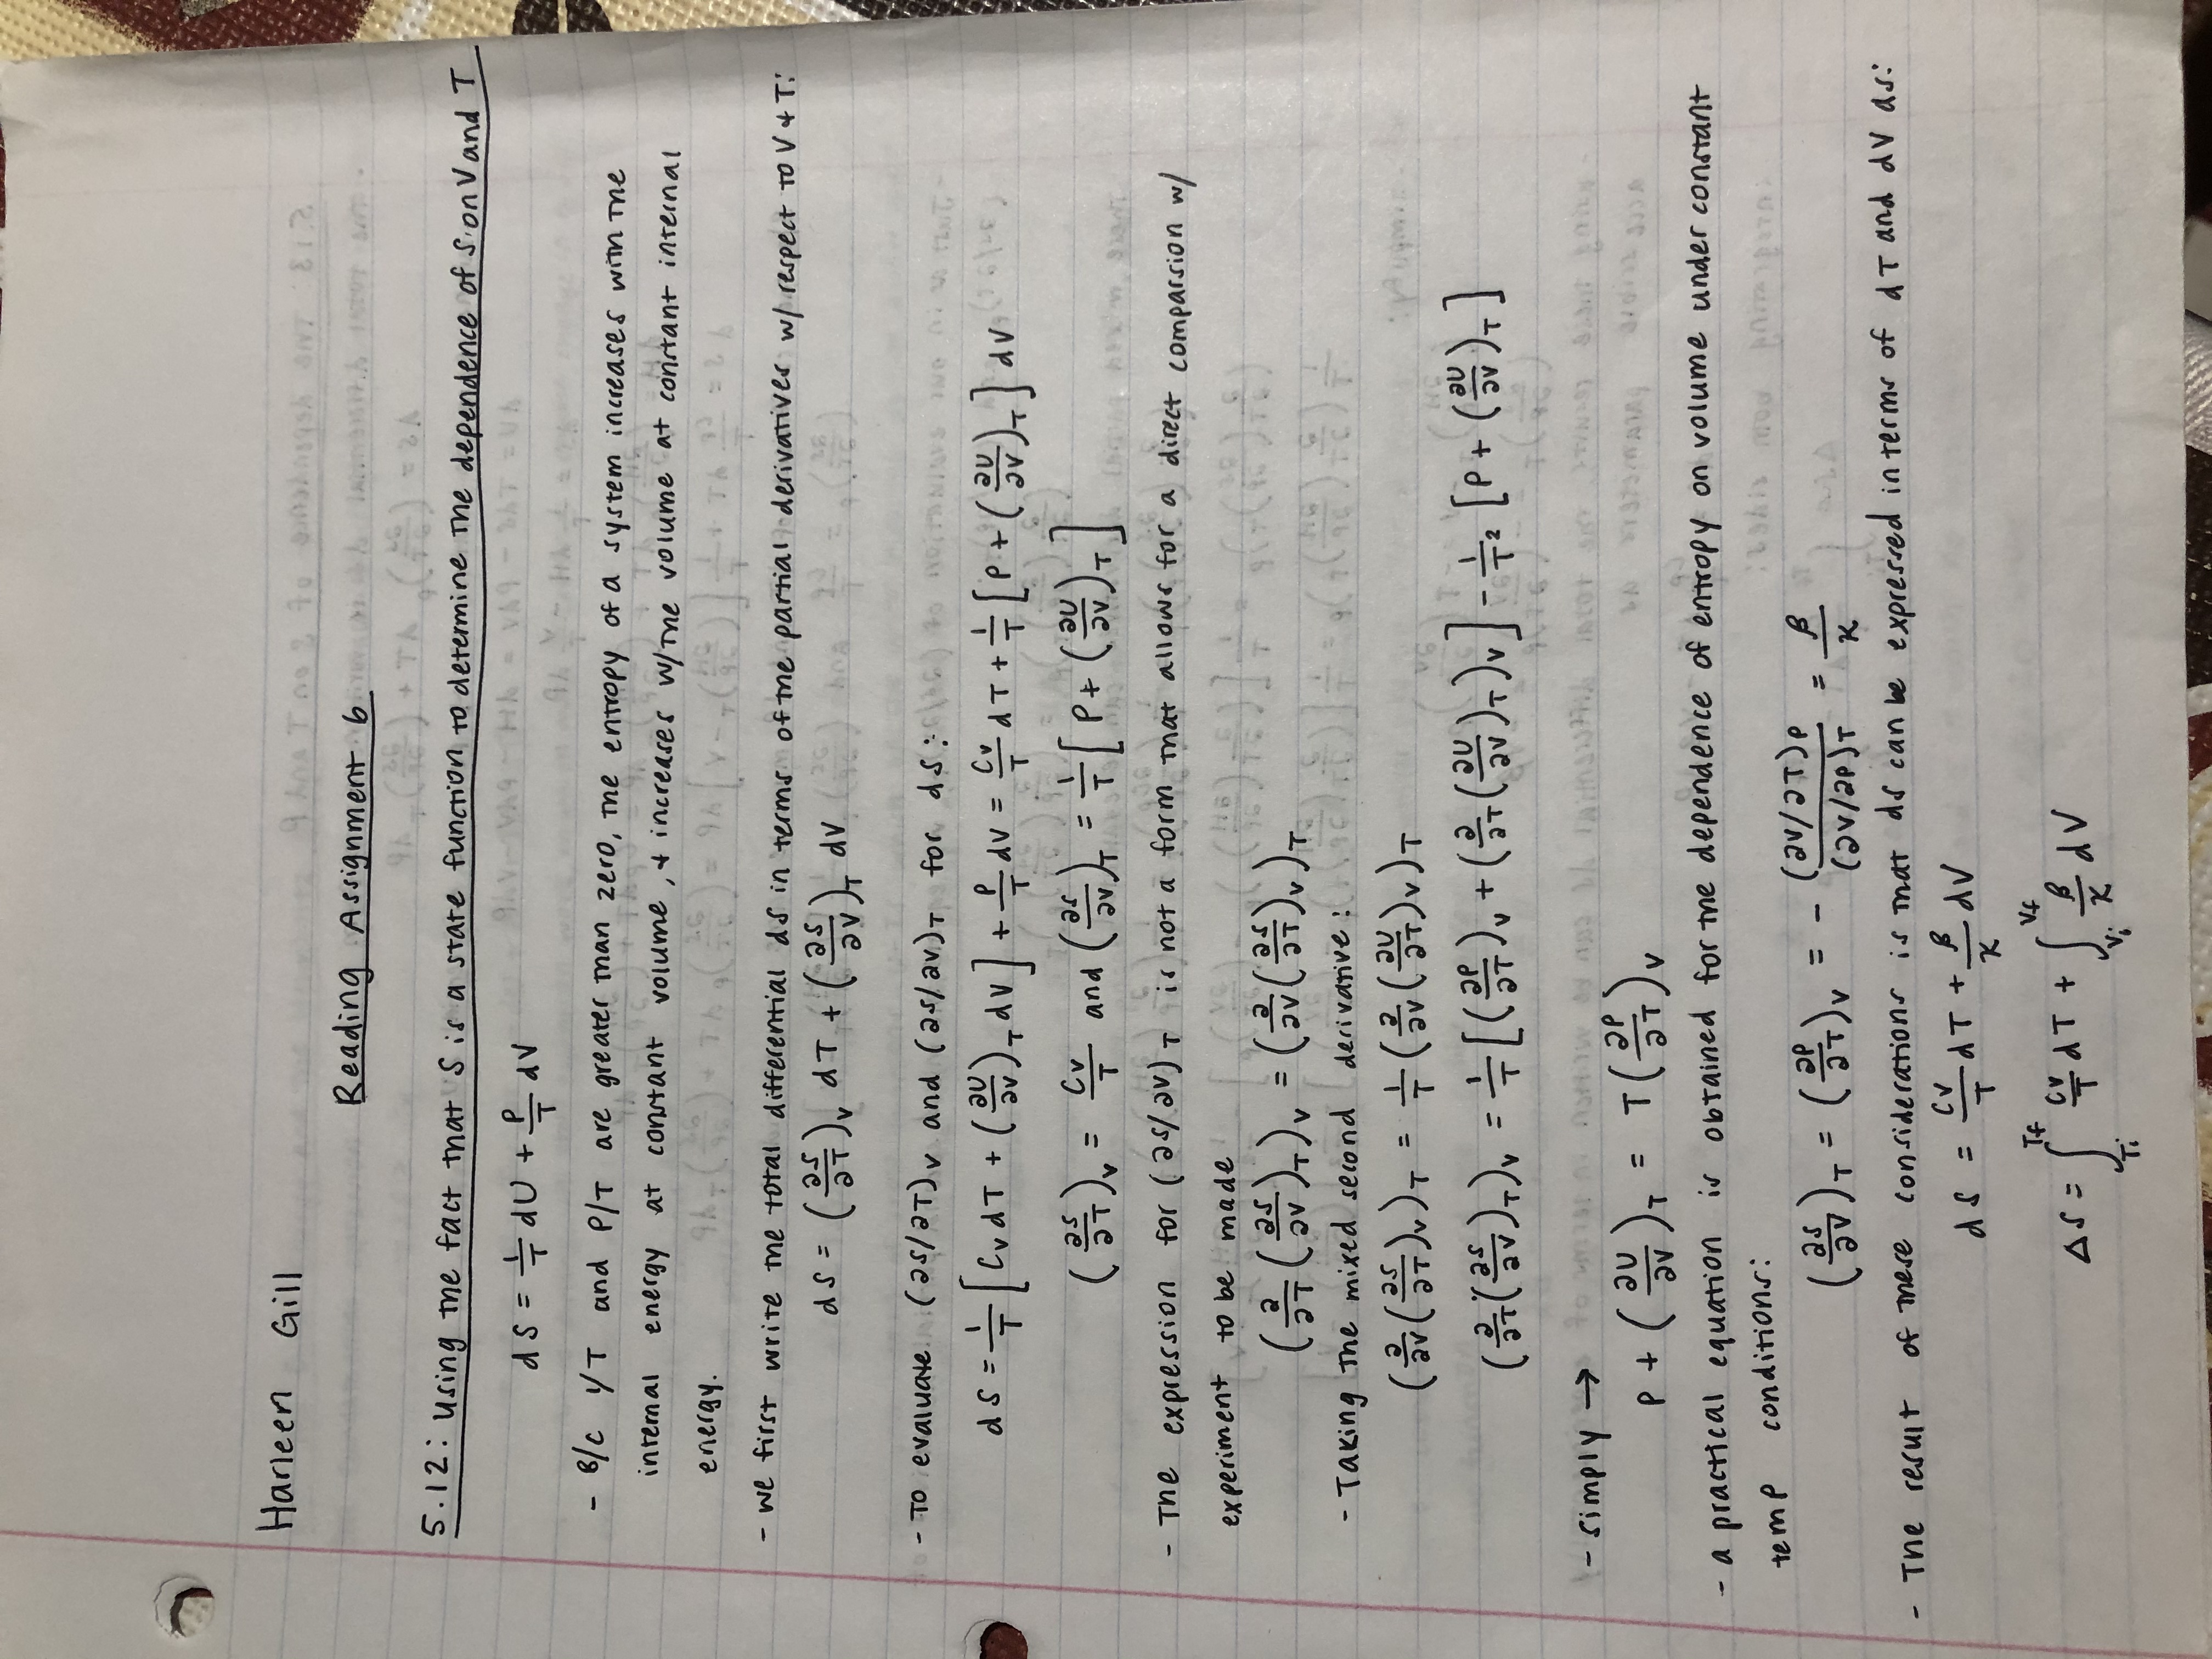 Harleen Gill
Reading Assignment 6
5.12: Using the fact that S is a state function to determine the dependence of S on V and T
dS = 1/T dU + P/T dV
- B/C 1/T and P/T are greater than zero, the entropy of a system increases with the
internal energy at constant volume, & increases w/the volume at constant internal
energy.
- we first write the total differential dS in terms of the partial derivatives w/ respect to V & T:
dS = (∂S/∂T)_V dT + (∂S/∂V)_T dV
- To evaluate (∂S/∂T)_V and (∂S/∂V)_T for dS:
dS = 1/T [C_V dT + (∂U/∂V)_T dV] + P/T dV = C_V/T dT + 1/T [P + (∂U/∂V)_T] dV
(∂S/∂T)_V = C_V/T and (∂S/∂V)_T = 1/T [P + (∂U/∂V)_T]
- The expression for (∂S/∂V)_T is not a form that allows for a direct comparsion w/
experiment to be made
(∂/∂T (∂S/∂V)_T)_V = (∂/∂V (∂S/∂T)_V)_T
- Taking the mixed second derivative:
(∂/∂V (∂S/∂T)_V)_T = 1/T (∂/∂V (∂U/∂T)_V)_T
(∂/∂T (∂S/∂V)_T)_V = 1/T [(∂P/∂T)_V + (∂/∂T (∂U/∂V)_T)_V] - 1/T² [P + (∂U/∂V)_T]
- simply →
P + (∂U/∂V)_T = T(∂P/∂T)_V
- a practical equation is obtained for the dependence of entropy on volume under constant
temp conditions:
(∂S/∂V)_T = (∂P/∂T)_V = - (∂V/∂T)_P / (∂V/∂P)_T = β/κ
- The result of these considerations is that dS can be expressed in terms of dT and dV as:
dS = C_V/T dT + β/κ dV
ΔS = ∫_Ti^Tf C_V/T dT + ∫_Vi^Vf β/κ dV